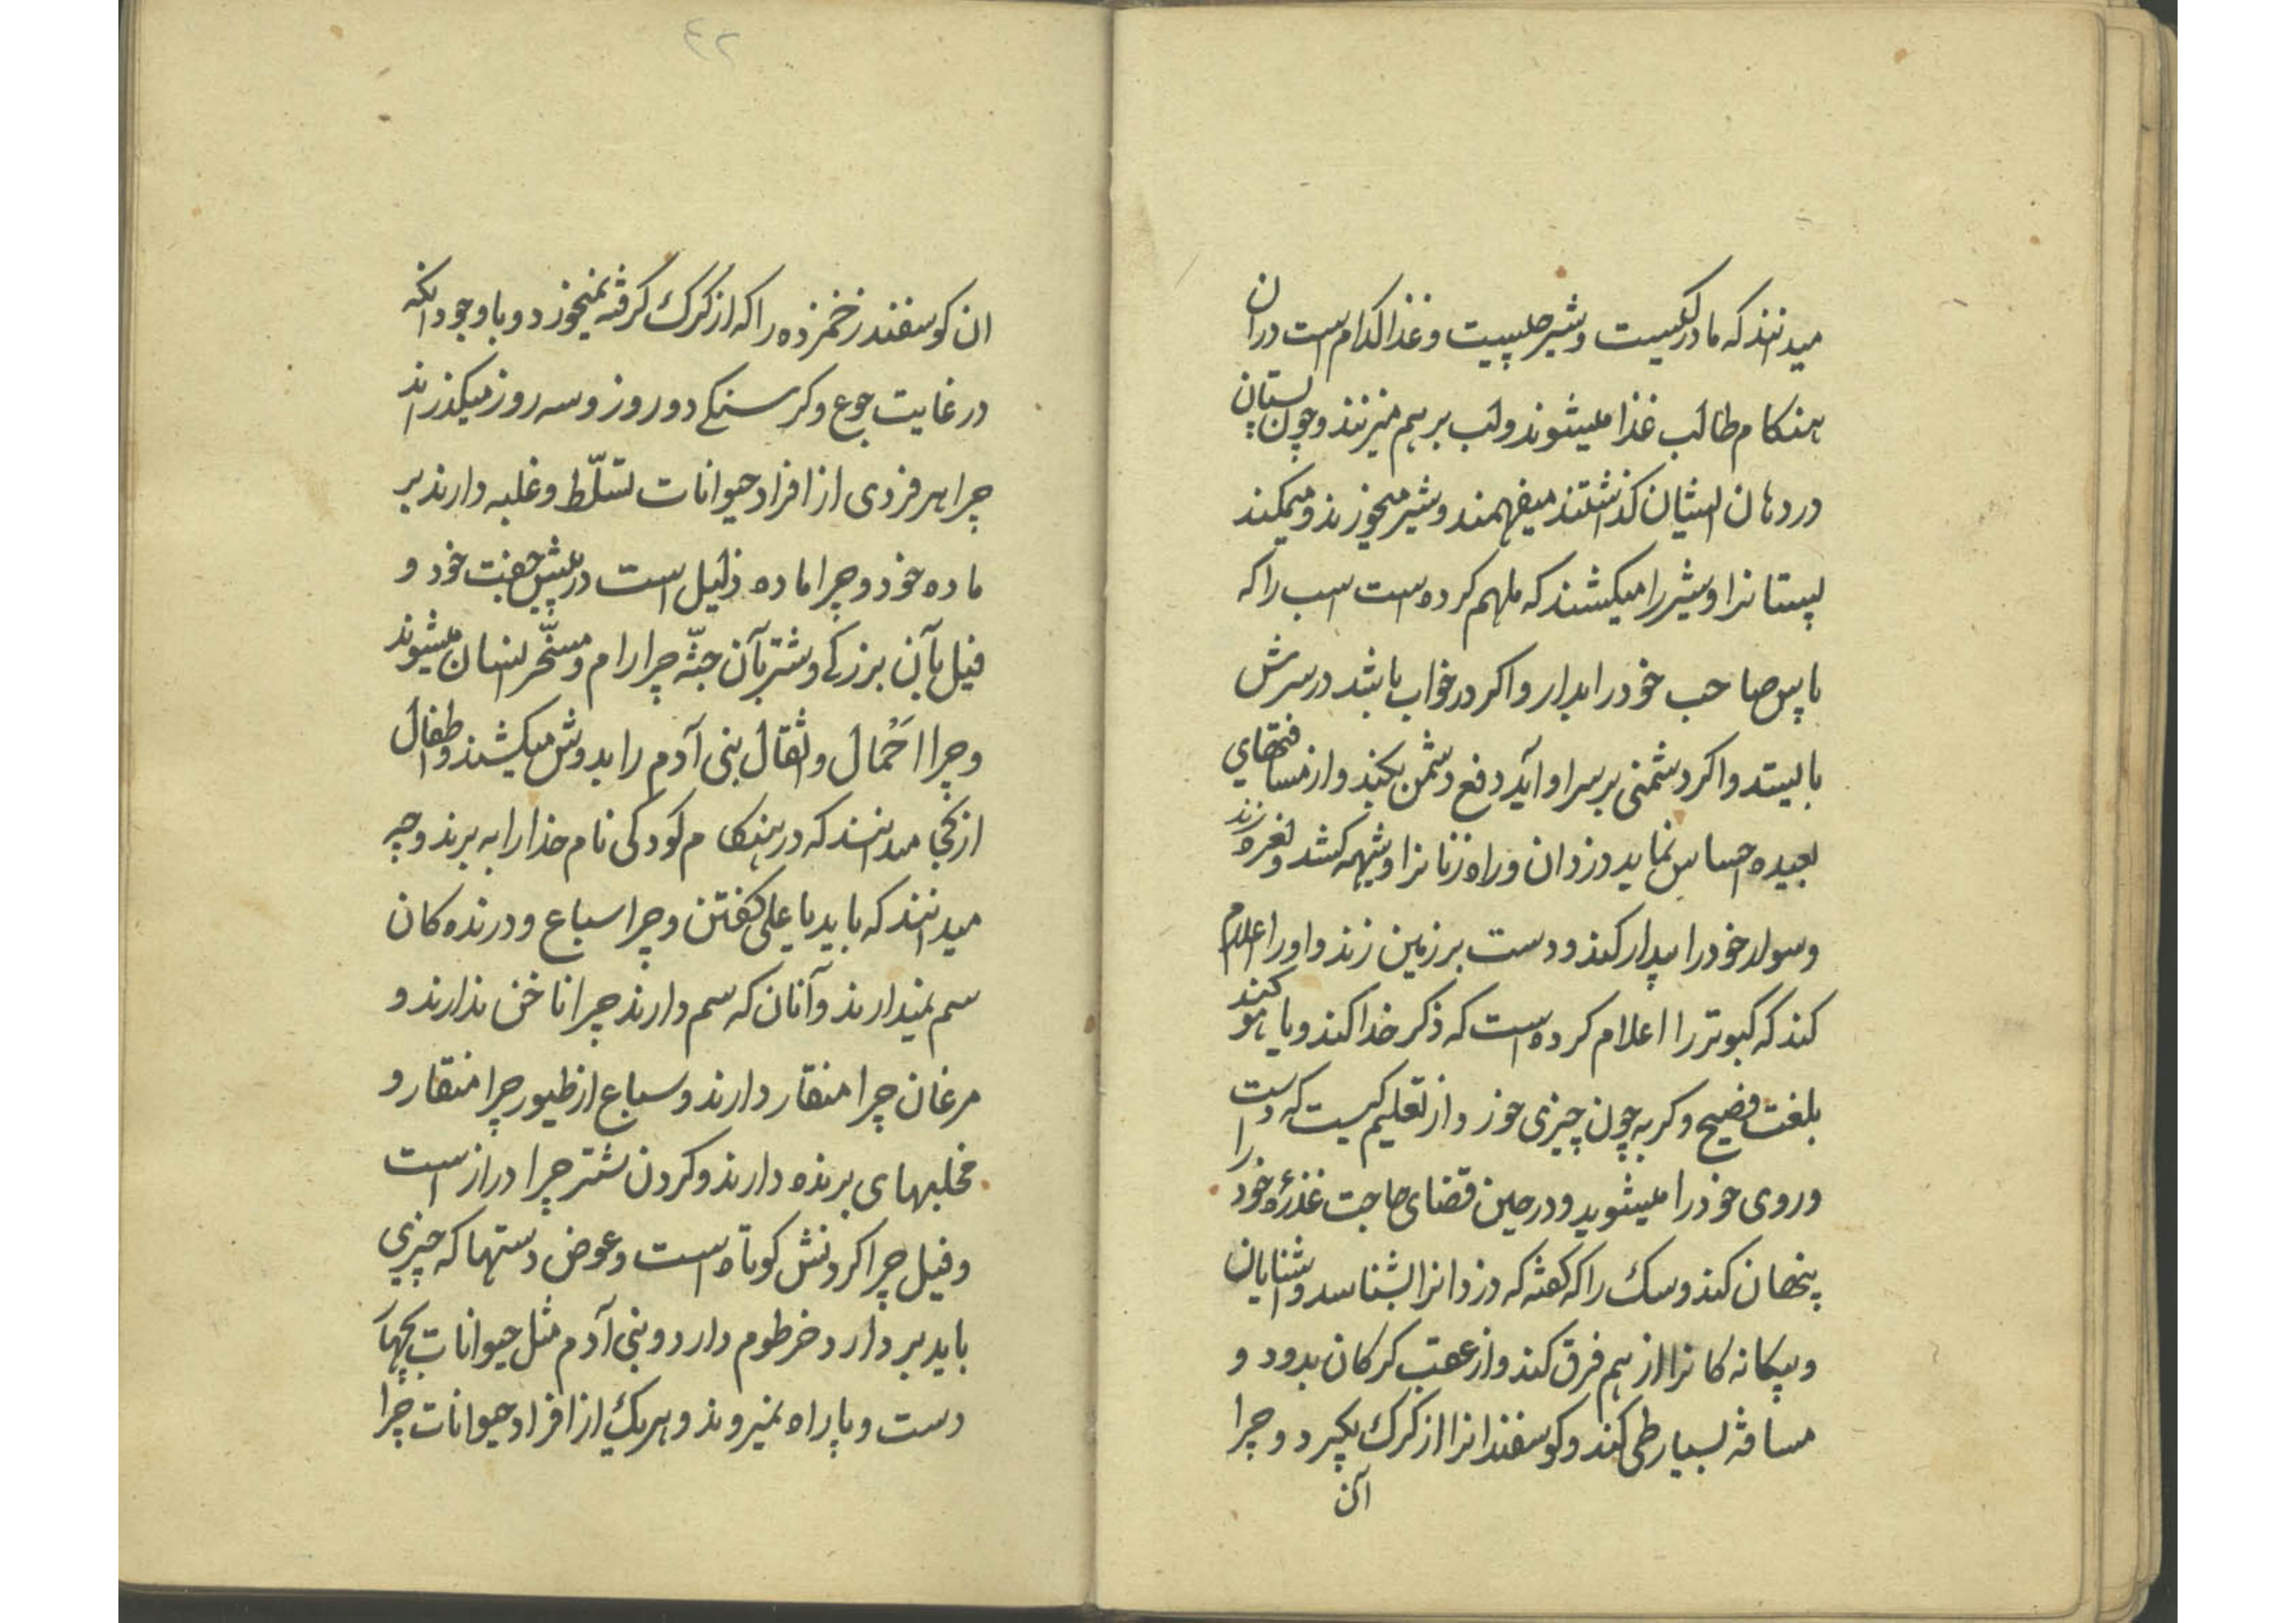 میدانند که مادر کیست و شیر چیست و غذا کدام است در ان
هنکام طالب غذا میشوند و لب بر هم میزنند و چون پستان
در دهان ایشان کذاشتند میفهمند و شیر میخورند و میمکند
پستانرا و شیر را میکشند که ملهم کرده است اسب را که
پاس صاحب خود را بدارد و اکر در خواب باشد در سرش
بایستد و اکر دشمنی بر سر او آید دفع دشمن بکند و از مسافتهای
بعیده احساس نماید دزدان و راه زنانرا و شیهه کشد و نعره زند
و سوار خود را بیدار کند و دست بر زمین زند و او را اعلام
کند که کبوتر را اعلام کرده است که ذکر خدا کند و یا هو کند
بلغت فصیح و کربه چون چیزی خورد از تعلیم کیست که دست را
و روی خود را میشوید و در حین قضای حاجت عذرهٔ خود
پنهان کند و سک را که کفته که دزدانرا بشناسد و اشنایان
و بیکانه کانرا از هم فرق کند و از عقب کرکان بدود و
مسافة بسیار طی کند و کوسفندانرا از کرک بکیرد و چرا
آن
٤٢
ان کوسفند زخمزده را که از کرک کرفته نمیخورد و با وجود انکه
در غایت جوع و کرسنکی دو روز و سه روز میکذراند
چرا هر فردی از افراد حیوانات تسلّط و غلبه دارند بر
ماده خود و چرا ماده ذلیل است در پیش جفت خود و
فیل بآن بزرکی و شتر بآن جثّه چرا رام و مسخّر انسان میشوند
و چرا احَمال و اثقال بنی آدم را بدوش میکشند و اطفال
از کجا میدانند که در هنکام کودکی نام خدا را به برند و چه
میدانند که باید یا علی کفتن و چرا سباع و درنده کان
سم نمیدارند و آنان که سم دارند چرا ناخن ندارند و
مرغان چرا منقار دارند و سباع از طیور چرا منقار و
مخلبهای برنده دارند و کردن شتر چرا دراز است
و فیل چرا کردنش کوتاه است و عوض دستها که چیزی
باید بردارد خرطوم دارد و بنی آدم مثل حیوانات بچهار
دست و پا راه نمیروند و هر یک از افراد حیوانات چرا